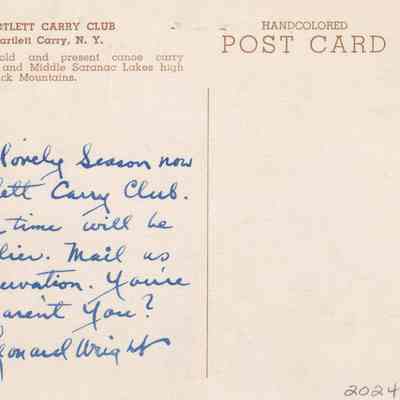 RTLETT CARRY CLUB
artlett Carry, N. Y.
old and present canoe carry
and Middle Saranac Lakes high
ck Mountains.
HANDCOLORED
POST CARD
lovely Season now
lett Carry Club.
time will be
lier. Mail us
ervation. You're
aren't You?
eonard Wright
2024